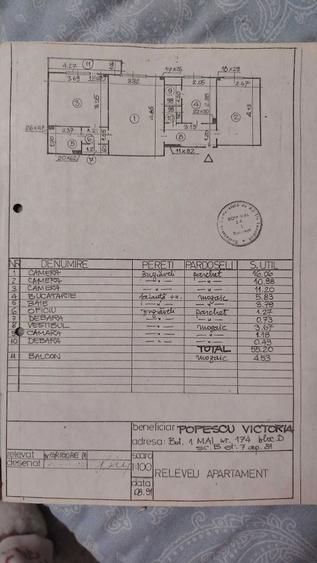 4.27 11
3.69
3.32
2.05
18x28
2.47
3
1
4
2
3.05
4.85
2.85
4.13
26x47
2.37
3.19
5
6
8
7
20x62
11x82
1.20
NR DENUMIRE PERETI PARDOSELI S.UTIL
1 CAMERA zugraveli parchet 16.06
2 CAMERA —"— —"— 10.88
3 CAMERA —"— —"— 11.20
4 BUCATARIE faianta mozaic 5.83
5 BAIE —"— —"— 3.79
6 OFICIU zugraveli parchet 1.27
7 DEBARA —"— —"— 0.73
8 VESTIBUL —"— mozaic 3.67
9 CAMARA —"— —"— 1.18
10 DEBARA —"— —"— 0.49
TOTAL 55.20
11 BALCON mozaic 4.53
beneficiar POPESCU VICTORIA
adresa: Bd. 1 MAI nr. 174 bloc D
sc. B et. 7 ap. 81
relevat
desenat
scara
1:100
data
08.91
RELEVEU APARTAMENT